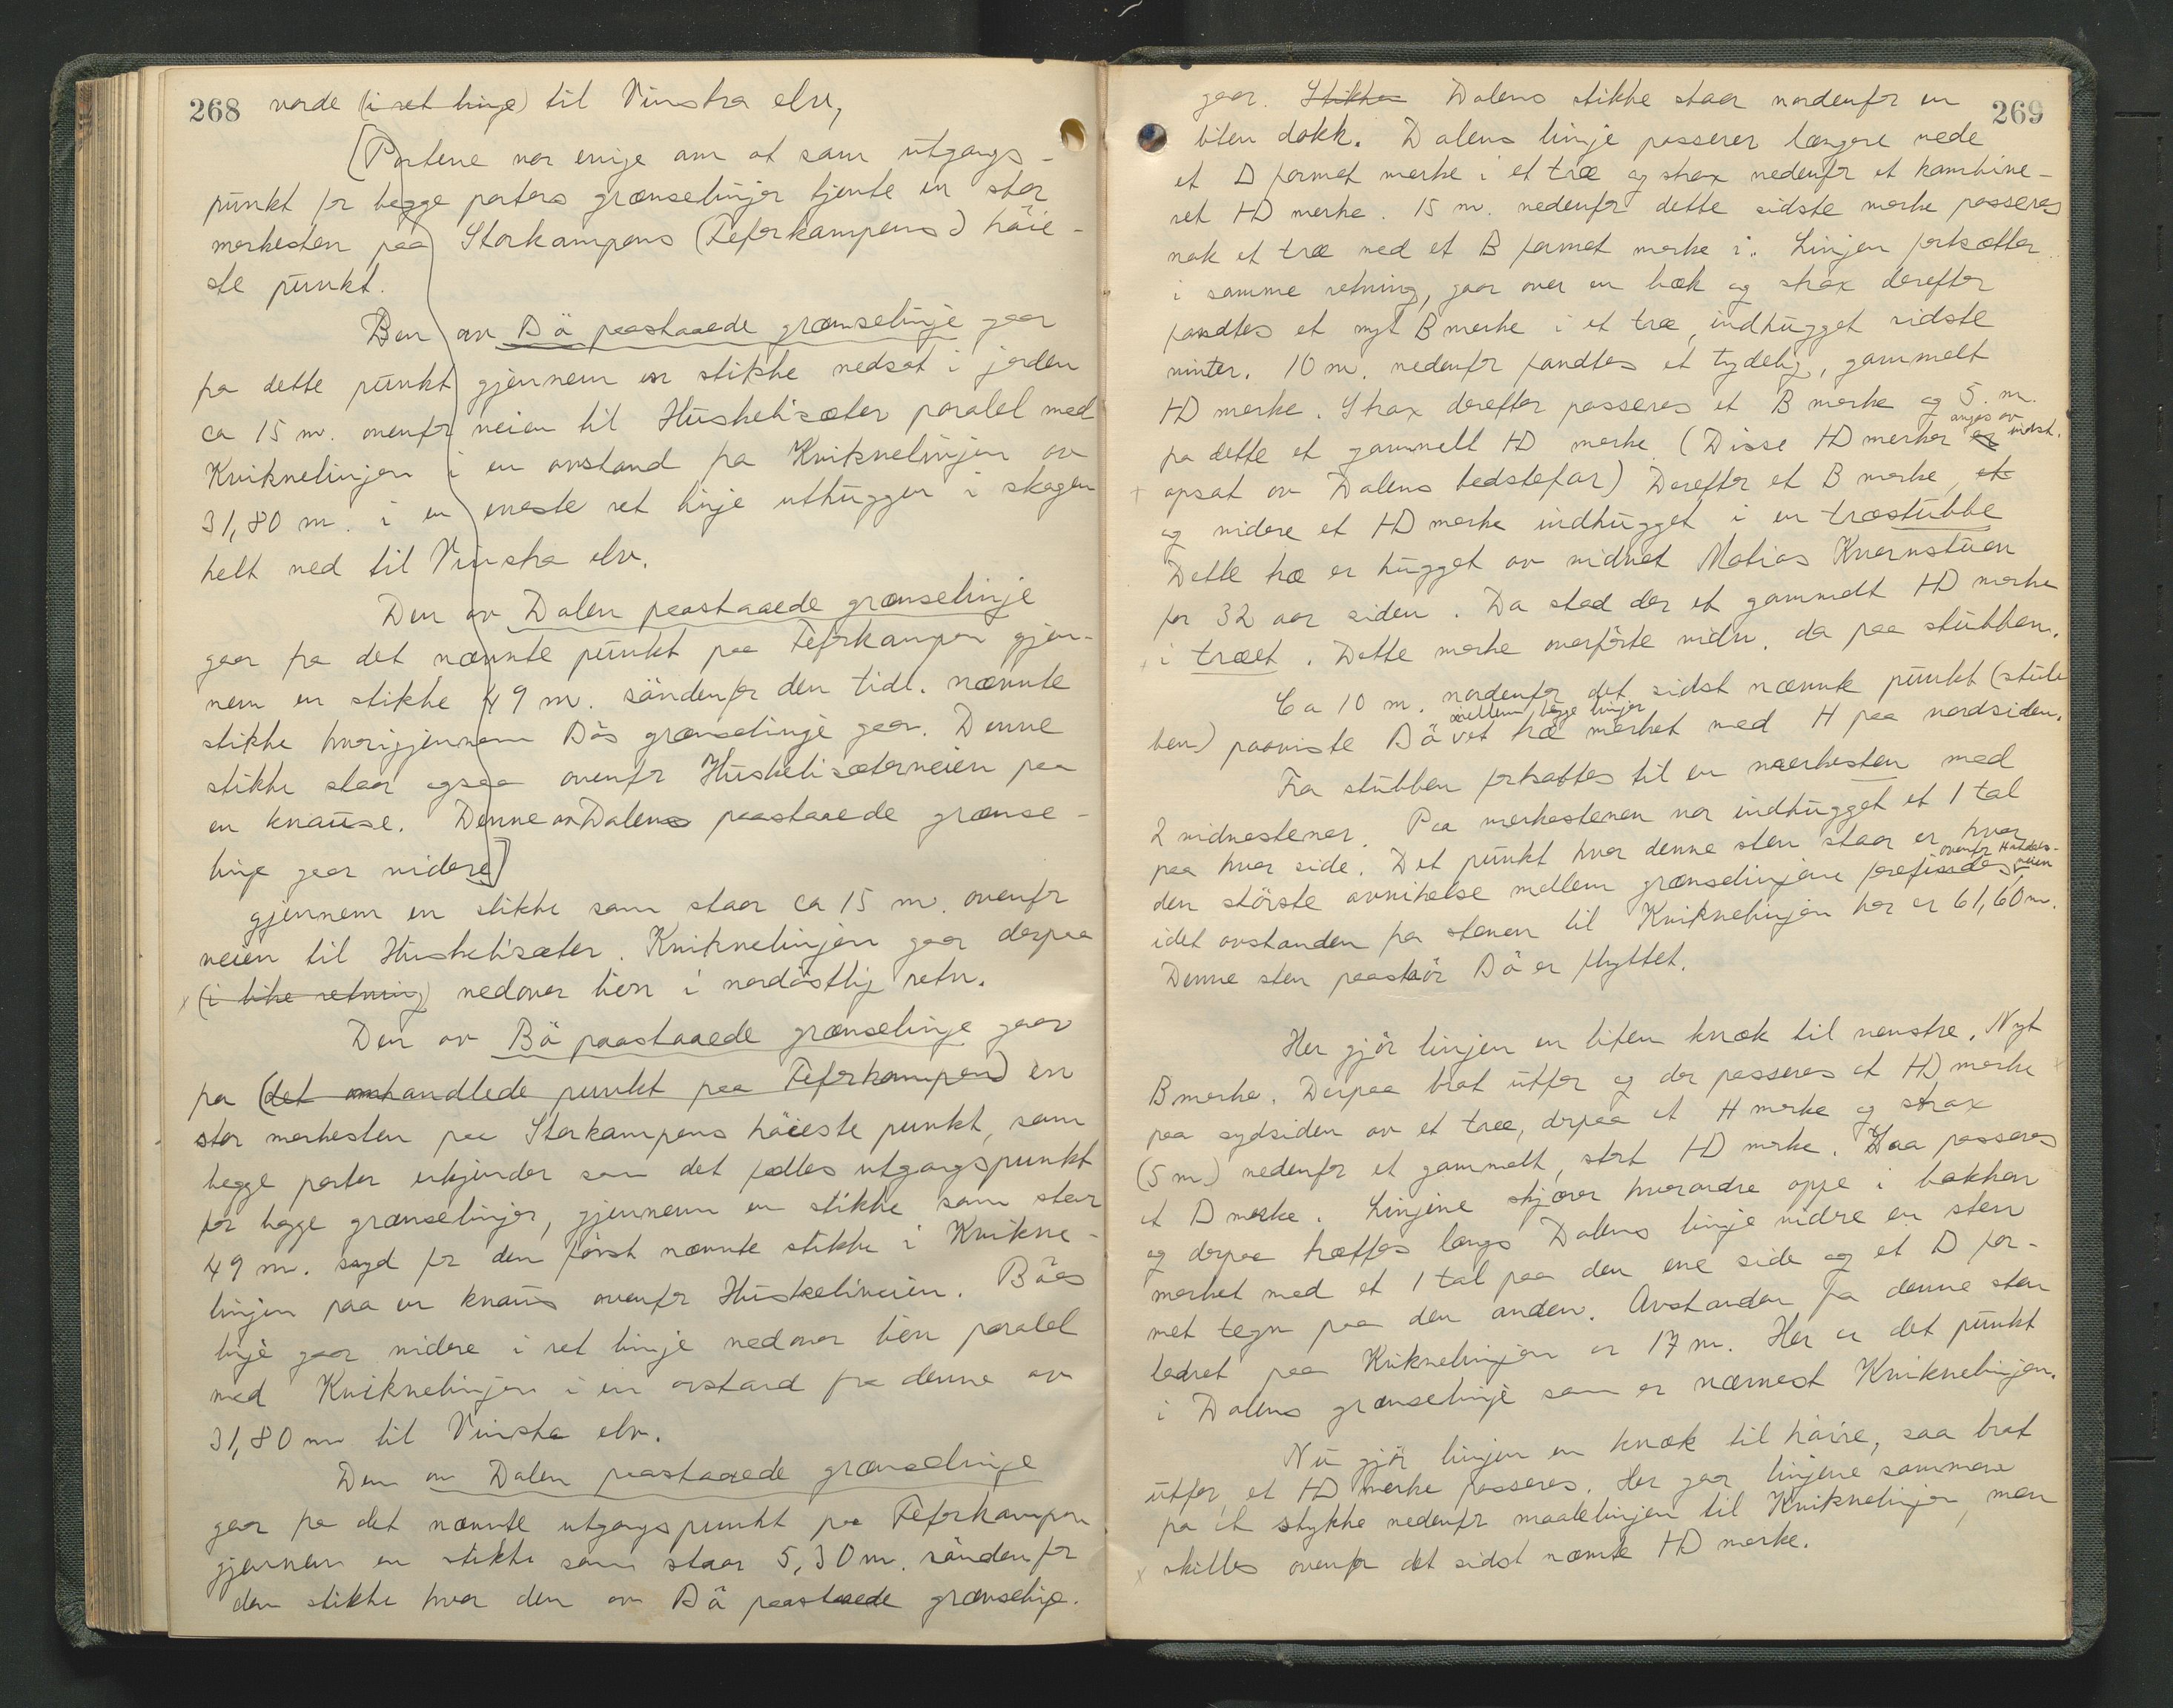 268 varde (i ret linje) til Vinstra elv,
[Partene var enige om at som utgangs-
punkt for begge parters grænselinjer tjente en stor
merkesten paa Storkampens (Feforkampens) høie-
ste punkt.
Den av Bö paastaaede grænselinje gaar
fra dette punkt gjennem en stikke nedsat i jorden
ca 15 m. ovenfr veien til Huskelisæter paralel med
Kviknelinjen i en avstand fra Kviknelinjen av
31,80 m. i en eneste ret linje uthugger i skogen
helt ned til Vinstra elv.
Den av Dalen paastaaede grænselinje
gaar fra det nævnte punkt paa Feforkampen gjen-
nem en stikke 49 m. søndenfor den tidl. nævnte
stikke hvorigjennem Bös grænselinje gaar. Denne
stikke staar ogsaa ovenfr Huskelisæterveien paa
en knause. Denne av Dalens paastaaede grænse-
linje gaar videre]
gjennem en stikke som staar ca 15 m. ovenfr
veien til Huskelisæter. Kviknelinjen gaar derpaa
x (i like retning) nedover lien i nordöstlig retn.
Den av Bö paastaaede grænselinje gaar
fra (det omhandlede punkt paa Feforkampen) en
stor merkesten paa Storkampens höieste punkt, som
begge parter erkjender som det fælles utgangspunkt
for begge grænselinjer, gjennem en stikke som staar
49 m. syd for den först nævnte stikke i Kvikne-
linjen paa en knaus ovenfr Huskeliveien. Böes
linje gaar videre i ret linje nedover lien paralel
med Kviknelinjen i en avstand fra denne av
31,80 m til Vinstra elv.
Den av Dalen paastaaede grænselinje
gaar fra det nævnte utgangspunkt paa Feforkampen
gjennem en stikke som staar 5,30 m. söndenfr
den stikke hvor den av Bö paastaaede grænselinje.
269
gaar. Stikken Dalens stikke staar nordenfr en
liten dokk. Dalens linje passerer længere nede
et D formet merke i et træ og strax nedenfr et kombine-
ret HD merke. 15 m. nedenfr dette sidste merke passeres
nok et træ med et B formet merke i. Linjen fortsætter
i samme retning, gaar over en bæk og strax derefter
fandtes et nyt B merke i et træ, indhugget sidste
vinter. 10 m. nedenfr fandtes et tydelig, gammelt
HD merke. Strax derefter passeres et B merke og 5. m.
fra dette et gammelt HD merke. (Disse HD merker er
+ opsat av Dalens bedstefar) Derefter et B merke, et
og videre et HD merke indhugget i en træstubbe
Dette træ er hugget av vidnet Matias Kvernstuen
for 32 aar siden. Da stod der et gammelt HD merke
i træet. Dette merke overførte vidn. da paa stubben.
Ca 10 m. nordenfor det sidst nævnte punkt (stub
mellem begge linjer
ben) paaviste Bö et træ merket med H paa nordsiden.
Fra stubben fortsattes til en merkesten med
2 vidnestener. Paa merkestenen var indhugget et 1 tal
paa hver side. Det punkt hvor denne sten staar er hvor
ovenfr
den störste avvikelse mellem grænselinjene forefindes,
idet avstanden fra stenen til Kviknelinjen her er 61,60 m.
Denne sten paastaar Bö er flyttet.
Her gjör linjen en liten knæk til venstre. Nyt
B merke. Derpaa brat utfor og der passeres et HD merke
paa sydsiden av et træ, derpaa et H merke og strax
(5 m.) nedenfor et gammelt, stort HD merke. Saa passeres
et D merke. Linjene skjærer hverandre oppe i bakken
og derpaa træffes langs Dalens linje videre en sten
merket med et 1 tal paa den ene side og et D for-
met tegn paa den anden. Avstanden fra denne sten
lodret paa Kviknelinjen er 17 m. Her er det punkt
i Dalens grænselinje som er nærmest Kviknelinjen.
Nu gjör linjen en knæk til höire, saa brat
utfor, et HD merke passeres. Her gaar linjene sammen
paa et stykke nedenfr maalelinjen til Kviknelinjen, men
x skilles ovenfor det sidst nævnte HD merke.